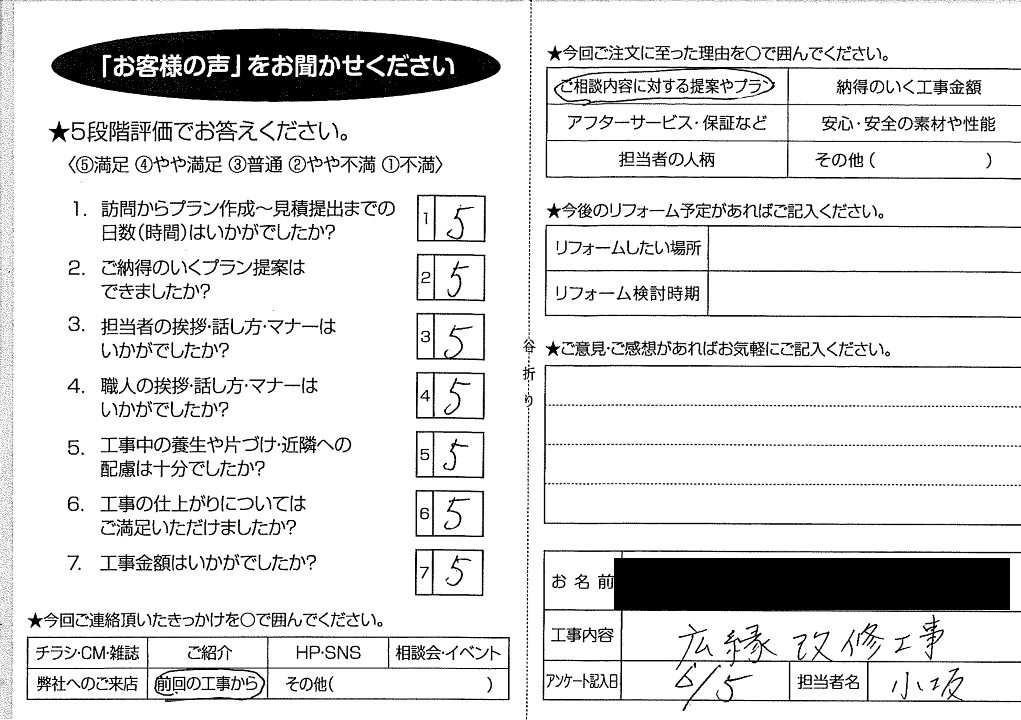 「お客様の声」をお聞かせください
★5段階評価でお答えください。
〈⑤満足 ④やや満足 ③普通 ②やや不満 ①不満〉
1. 訪問からプラン作成～見積提出までの
日数(時間)はいかがでしたか?
1 5
2. ご納得のいくプラン提案は
できましたか?
2 5
3. 担当者の挨拶・話し方・マナーは
いかがでしたか?
3 5
4. 職人の挨拶・話し方・マナーは
いかがでしたか?
4 5
5. 工事中の養生や片づけ・近隣への
配慮は十分でしたか?
5 5
6. 工事の仕上がりについては
ご満足いただけましたか?
6 5
7. 工事金額はいかがでしたか?
7 5
★今回ご連絡頂いたきっかけを〇で囲んでください。
チラシ・CM・雑誌 ご紹介 HP・SNS 相談会・イベント
弊社へのご来店 前回の工事から その他( )
谷折り
★今回ご注文に至った理由を〇で囲んでください。
ご相談内容に対する提案やプラン 納得のいく工事金額
アフターサービス・保証など 安心・安全の素材や性能
担当者の人柄 その他( )
★今後のリフォーム予定があればご記入ください。
リフォームしたい場所
リフォーム検討時期
★ご意見・ご感想があればお気軽にご記入ください。
お名前
工事内容 広縁改修工事
アンケート記入日 6/5 担当者名 小坂